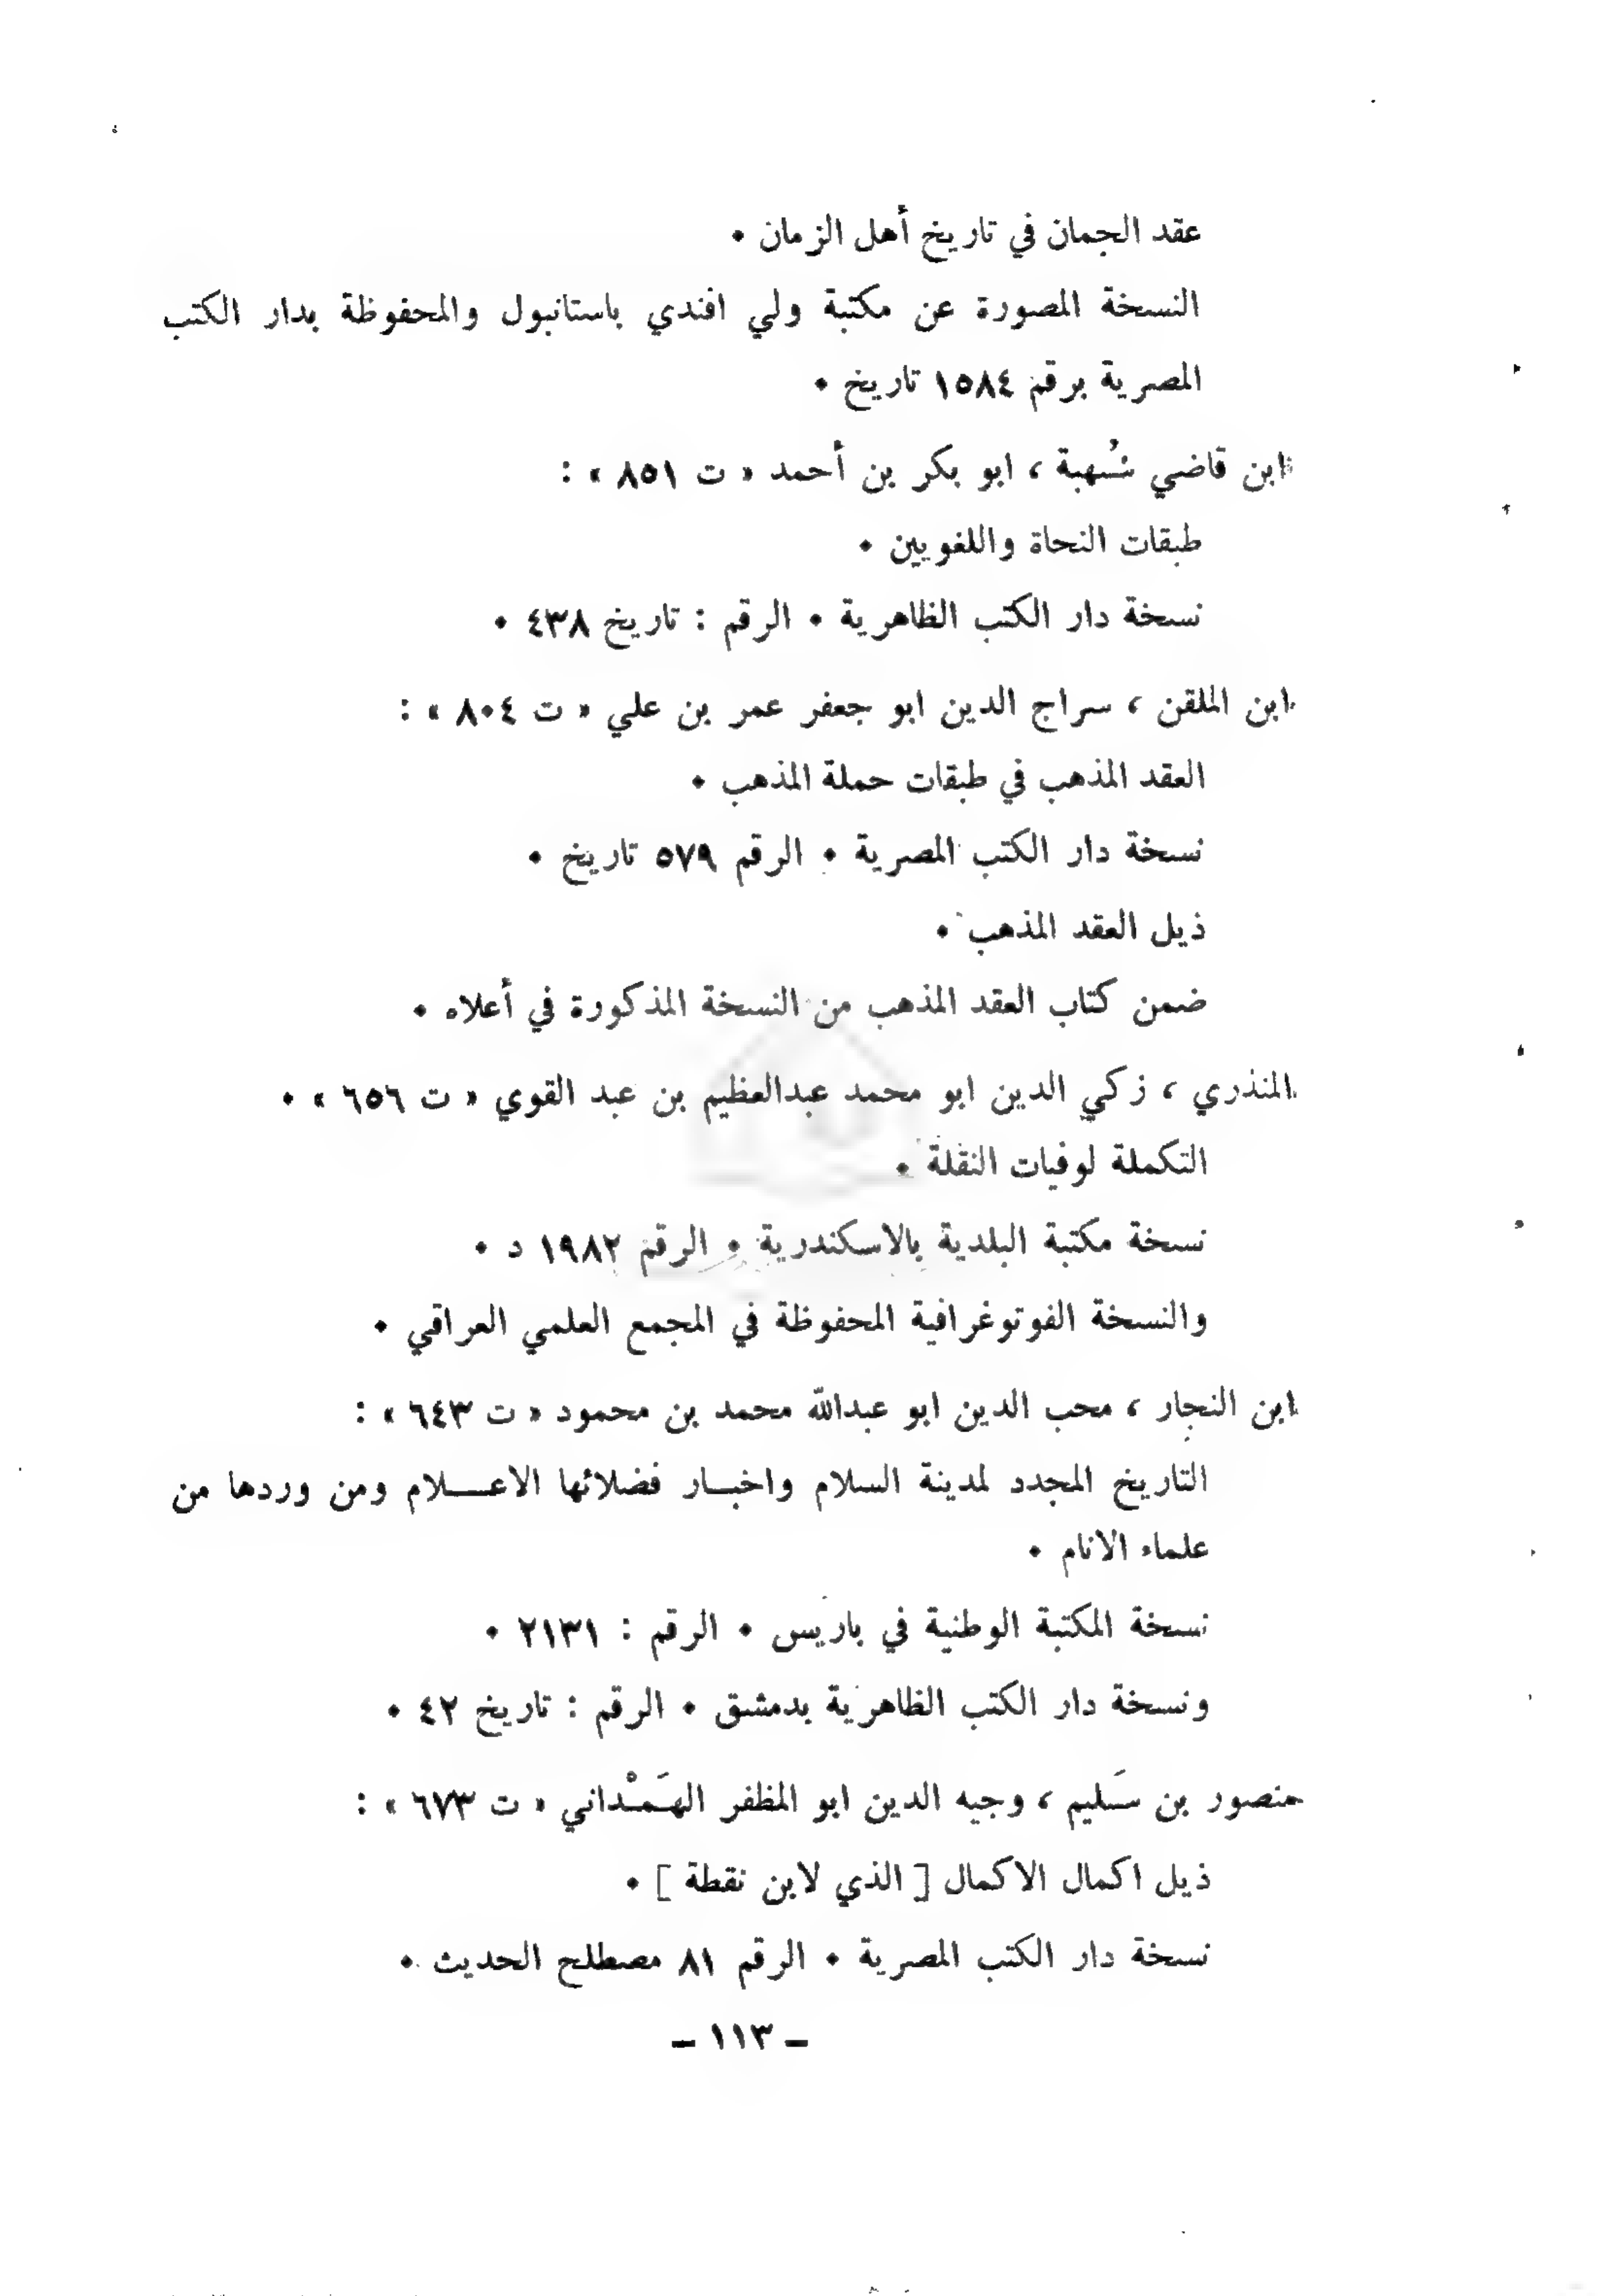 عقد الجمان في تاريخ أهل الزمان ٠
النسخة المصورة عن مكتبة ولي افندي باستانبول والمحفوظة بدار الكتب
المصرية برقم ١٥٨٤ تاريخ ٠
ابن قاضي شُهبة ، ابو بكر بن أحمد « ت ٨٥١ » :
طبقات النحاة واللغويين ٠
نسخة دار الكتب الظاهرية ٠ الرقم : تاريخ ٤٣٨ ٠
ابن الملقن ، سراج الدين ابو جعفر عمر بن علي « ت ٨٠٤ » :
العقد المذهب في طبقات حملة المذهب ٠
نسخة دار الكتب المصرية ٠ الرقم ٥٧٩ تاريخ ٠
ذيل العقد المذهب ٠
ضمن كتاب العقد المذهب من النسخة المذكورة في أعلاه ٠
المنذري ، زكي الدين ابو محمد عبدالعظيم بن عبد القوي « ت ٦٥٦ » ٠
التكملة لوفيات النقلة ٠
نسخة مكتبة البلدية بالاسكندرية ٠ الرقم ١٩٨٢ د ٠
والنسخة الفوتوغرافية المحفوظة في المجمع العلمي العراقي ٠
ابن النجار ، محب الدين ابو عبدالله محمد بن محمود « ت ٦٤٣ » :
التاريخ المجدد لمدينة السلام واخبـار فضلائها الاعـــلام ومن وردها من
علماء الانام ٠
نسخة المكتبة الوطنية في باريس ٠ الرقم : ٢١٣١ ٠
ونسخة دار الكتب الظاهرية بدمشق ٠ الرقم : تاريخ ٤٢ ٠
منصور بن سَليم ، وجيه الدين ابو المظفر الهَمْداني « ت ٦٧٣ » :
ذيل اكمال الاكمال [ الذي لابن نقطة ] ٠
نسخة دار الكتب المصرية ٠ الرقم ٨١ مصطلح الحديث ٠
– ١١٣ –